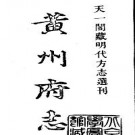 天一閣藏明代方志選刊
黄州府志